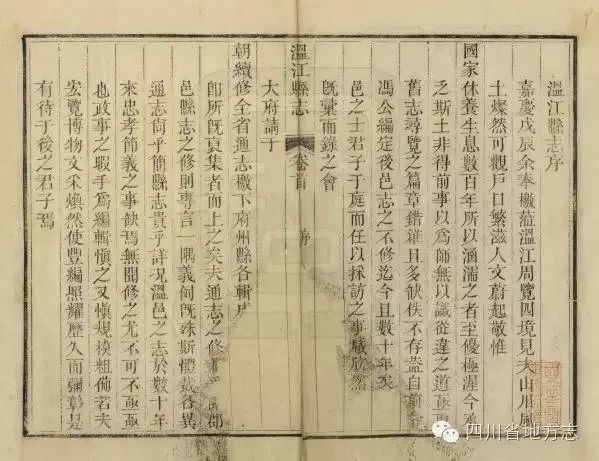 溫江縣志序
嘉慶戊辰余奉檄蒞溫江周覽四境見夫山川風
土燦然可觀戶口繁滋人文蔚起敬惟
國家休養生息數百年所以涵濡之者至優極渥今
之斯土非得前事以爲師無以識從違之道亟
舊志尋覽之篇章錯雜且多缺佚不存蓋自前令
馮公編定後邑志之不修迄今且數十年矣
邑之士君子于庭而任以採訪之事咸欣然
旣彙而錄之會
大府請于
溫江縣志
卷首
序
朝續修全省通志檄下府州縣各輯
卽所旣夏集者而上之矣夫通志之修
郡
邑縣志之修則專言一隅義例旣殊斯體裁各異
通志尙乎簡縣志貴乎詳况溫邑之志於數十年
來忠孝節義之事缺焉無聞修之尤不可不亟亟
也政事之暇手爲編輯愼之又愼規模粗備若夫
宏覽博物文采煥然使豐編照耀歷久而彌彰是
有待于後之君子焉
四川省地方志